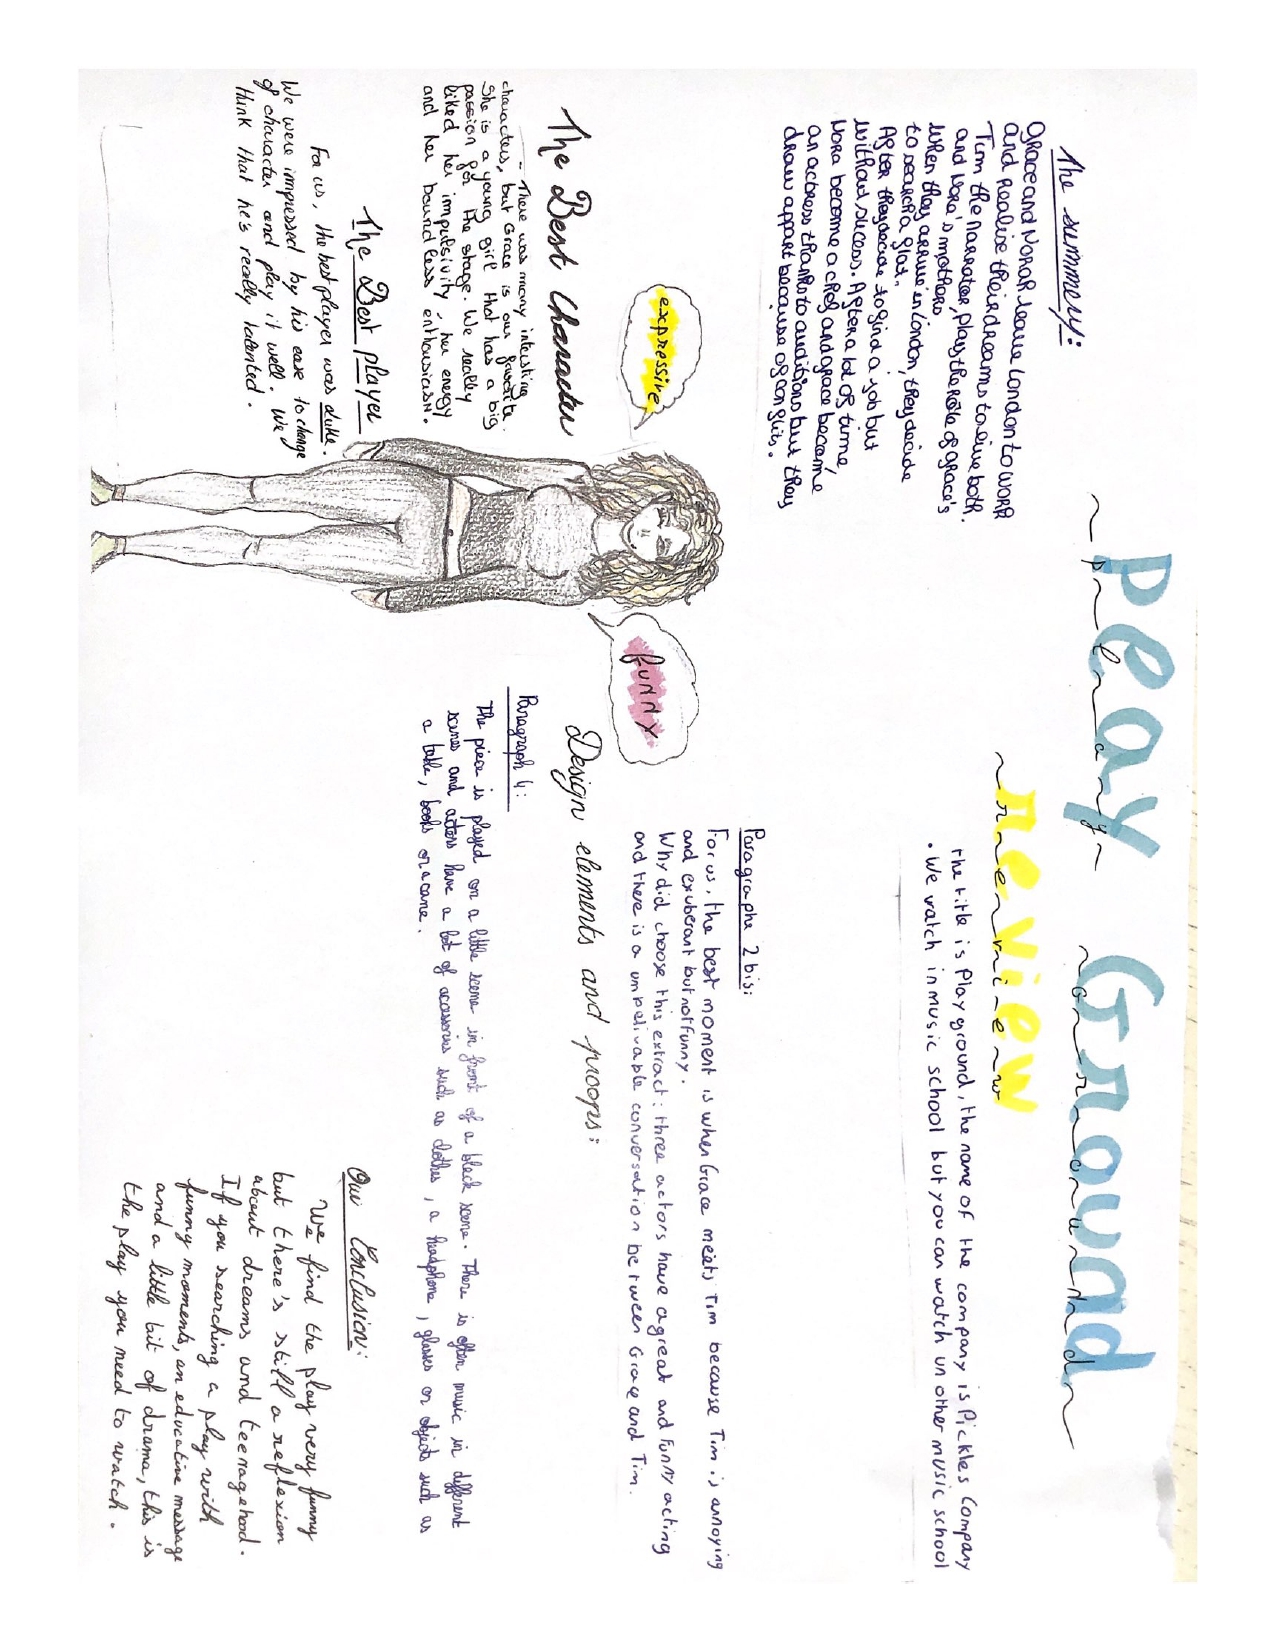 Play Ground
~p~l~a~y~ ~G~r~o~u~n~d~
review
~r~e~v~i~e~w
The title is Play ground, the name of the company is Pickles Company
. We watch in music school but you can watch un other music school
The summery:
Grace and Norah leave London to work
and realize their dreams to live both.
Tim the narrator, play the role of grace's
and Nora's mothers
When they arrive in London, they decide
to search a flat.
After they decide to find a job but
without sucess. After a lot of time,
Nora become a chef and grace become
an actress thanks to auditions but they
draw appart because of conflits.
Paragraphe 2 bis:
For us, the best moment is when Grace meets Tim because Tim is annoying
and exuberant but not funny.
Why did choose this extract: three actors have a great and funny acting
and there is a unbelivable conversation between Grace and Tim.
expressive
funny
The Best Character
- There was many intersting
characters, but Grace is our favorite.
She is a young girl that has a big
passion for the stage. We really
liked her impulsivity, her energy
and her boundless enthousiasm.
The Best player
For us, the best player was Luke.
We were impressed by his ease to change
of character and play it well. We
think that he's really talented.
Design elements and proops:
Paragraph 4:
The piece is played on a little scene in front of a black scene. There is often music in different
scenes and actors have a lot of accessories such as clothes, a headphone, glasses or objects such as
a table, books or a cane.
Our Conclusion:
We find the play very funny
but there's still a reflexion
about dreams and teenagehood.
If you searching a play with
funny moments, an educative message
and a little bit of drama, this is
the play you need to watch.